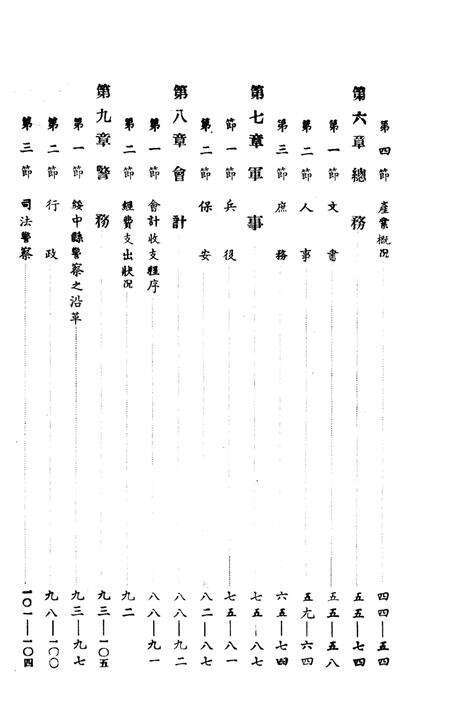 第四節 產業概況 四四—五四
第六章 總務 五五—七四
第一節 文書 五五—五八
第二節 人事 五九—六四
第三節 庶務 六五—七四
第七章 軍事 七五—八七
節一 兵役 七五—八一
第二節 保安 八二—八七
第八章 會計 八八—九二
第一節 會計收支程序 八八—九一
第二節 經費支出狀况 九二
第九章 警務 九三—一〇五
第一節 綏中縣警察之沿革 九三—九七
第二節 行政 九八—一〇〇
第三節 司法警察 一〇一—一〇四